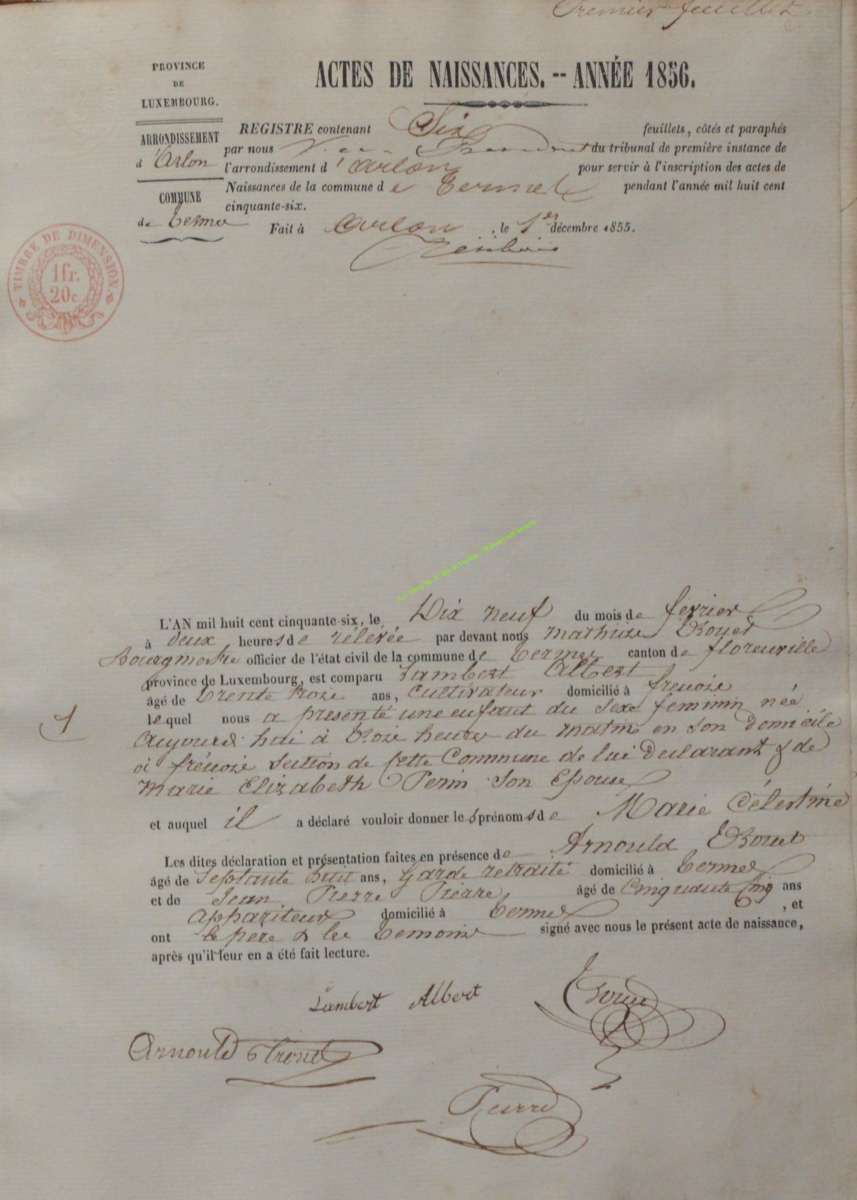 Premier feuillet
PROVINCE
DE
LUXEMBOURG.
ARRONDISSEMENT
d'Arlon
COMMUNE
de Termes
ACTES DE NAISSANCES. -- ANNÉE 1856.
REGISTRE contenant Six feuillets, côtés et paraphés
par nous Vice Président du tribunal de première instance de
l'arrondissement d'arlon pour servir à l'inscription des actes de
Naissances de la commune de Termes pendant l'année mil huit cent
cinquante-six.
Fait à arlon, le 1er décembre 1855.
TIMBRE DE DIMENSION
1fr.
20c
L'AN mil huit cent cinquante-six, le Dix neuf du mois de fevrier
à deux heures de rélévée par devant nous
Bourgmestre officier de l'état civil de la commune de Termes canton de florenville
province de Luxembourg, est comparu Lambert Albert
âgé de Trente Troze ans, Cultivateur domicilié à frenois
lequel nous a présenté une enfant du Sexe feminin née
1
aujourd'hui à Onze heures du matin en Son Domicile
Section de Cette Commune de lui Declarant & de
Marie Elizabeth Perin Son Epouse
et auquel il a déclaré vouloir donner les prénoms de Marie Célestine
Les dites déclaration et présentation faites en présence de Arnould
âgé de Septante huit ans, Garde retraité domicilié à Termes
et de Jean Pierre Pierre, âgé de Cinquante Cinq ans
appariteur domicilié à Termes, et
ont le père & les Temoins signé avec nous le présent acte de naissance,
après qu'il leur en a été fait lecture.
Lambert Albert
Arnould
Pierre